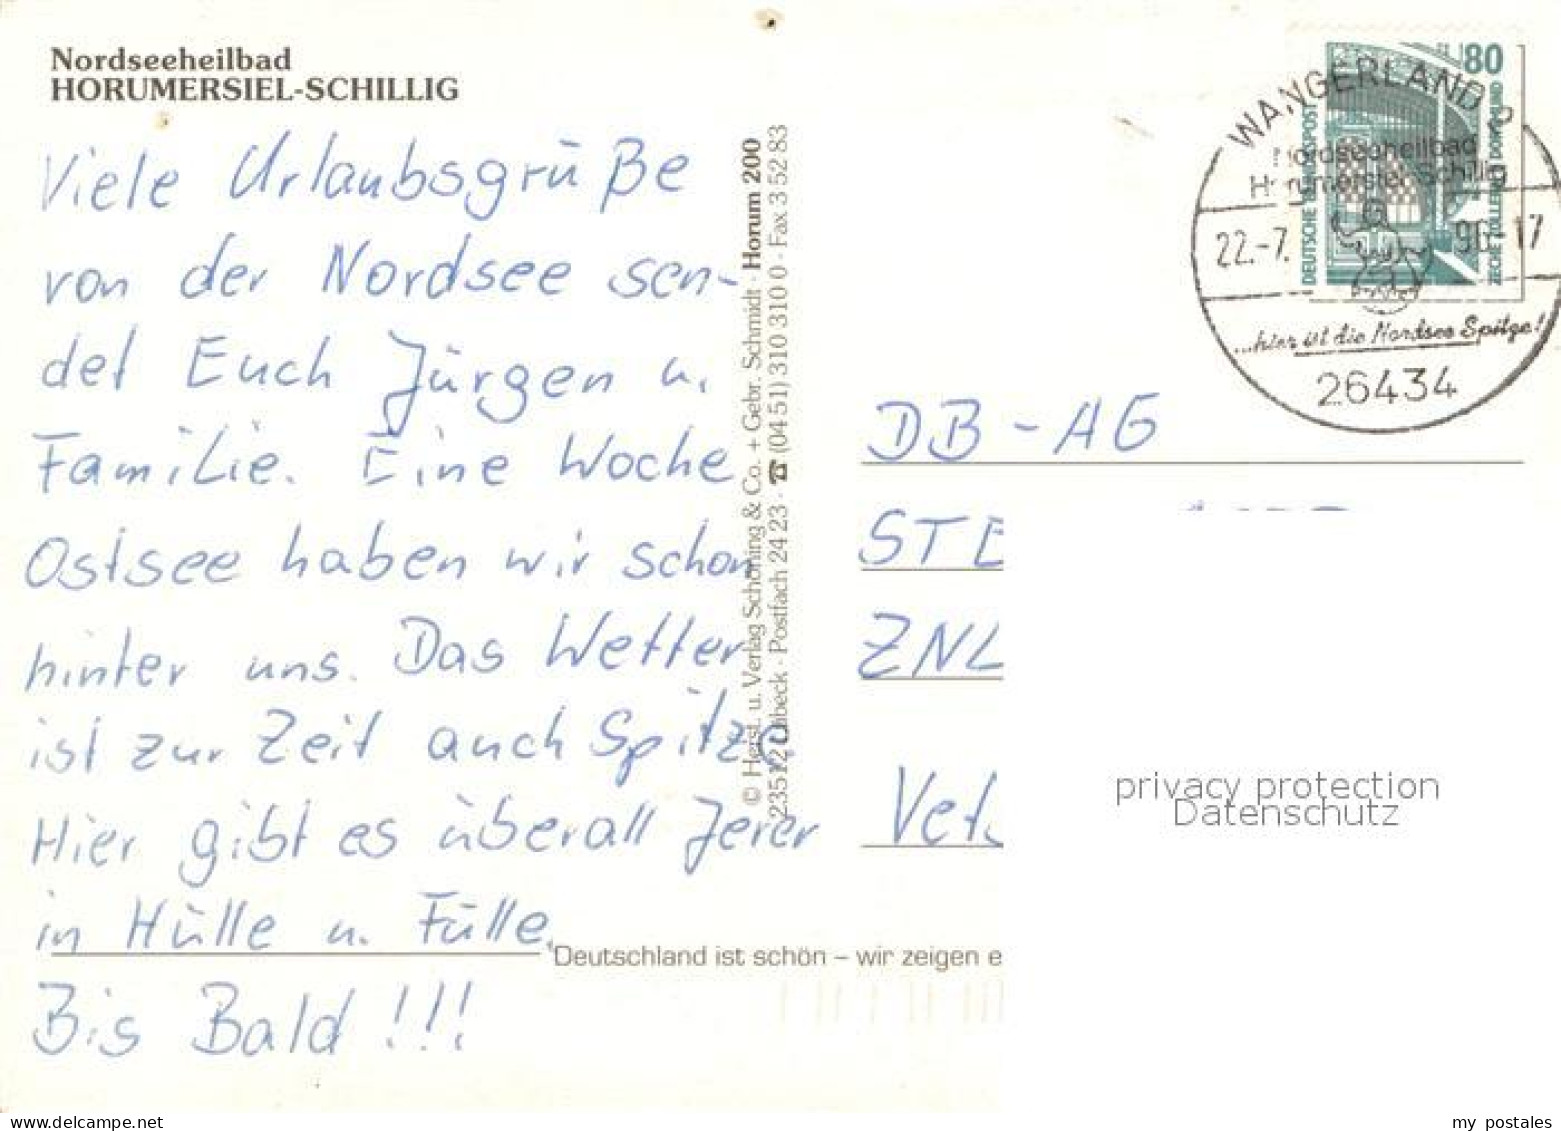 Nordseeheilbad
HORUMERSIEL-SCHILLIG
Viele Urlaubsgrüße
von der Nordsee sen-
det Euch Jürgen u.
Familie. Eine Woche
Ostsee haben wir schon
hinter uns. Das Wetter
ist zur Zeit auch Spitze.
Hier gibt es überall Jever
in Hülle u. Fülle.
Bis Bald !!!
© Herst. u. Verlag Schöning & Co. + Gebr. Schmidt · Horum 200
23512 Lübeck · Postfach 24 23 · ☎ (04 51) 310 310 0 · Fax 3 52 83
Deutschland ist schön – wir zeigen e
80
DEUTSCHE BUNDESPOST
ZECHE ZOLLERN II DORTMUND
WANGERLAND 2
Nordseeheilbad
Horumersiel-Schillig
22.-7. 96-17
...hier ist die Nordsee Spitze!
26434
DB-AG
STE
ZNL
privacy protection
Datenschutz
my postales